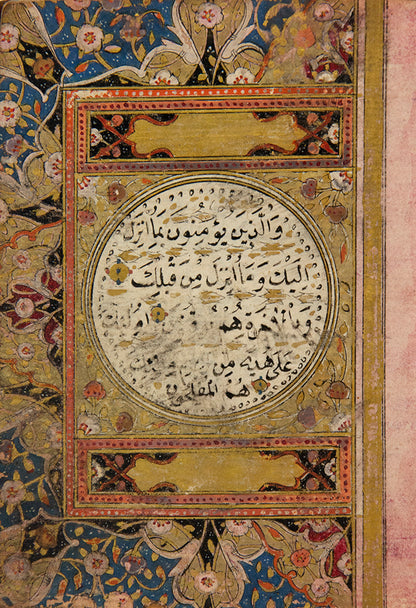 وَالَّذِينَ يُؤْمِنُونَ بِمَا أُنْزِلَ
إِلَيْكَ وَمَا أُنْزِلَ مِنْ قَبْلِكَ
وَبِالْآخِرَةِ هُمْ يُوقِنُونَ أُولَٰئِكَ
عَلَىٰ هُدًى مِنْ رَبِّهِمْ وَأُولَٰئِكَ
هُمُ الْمُفْلِحُونَ